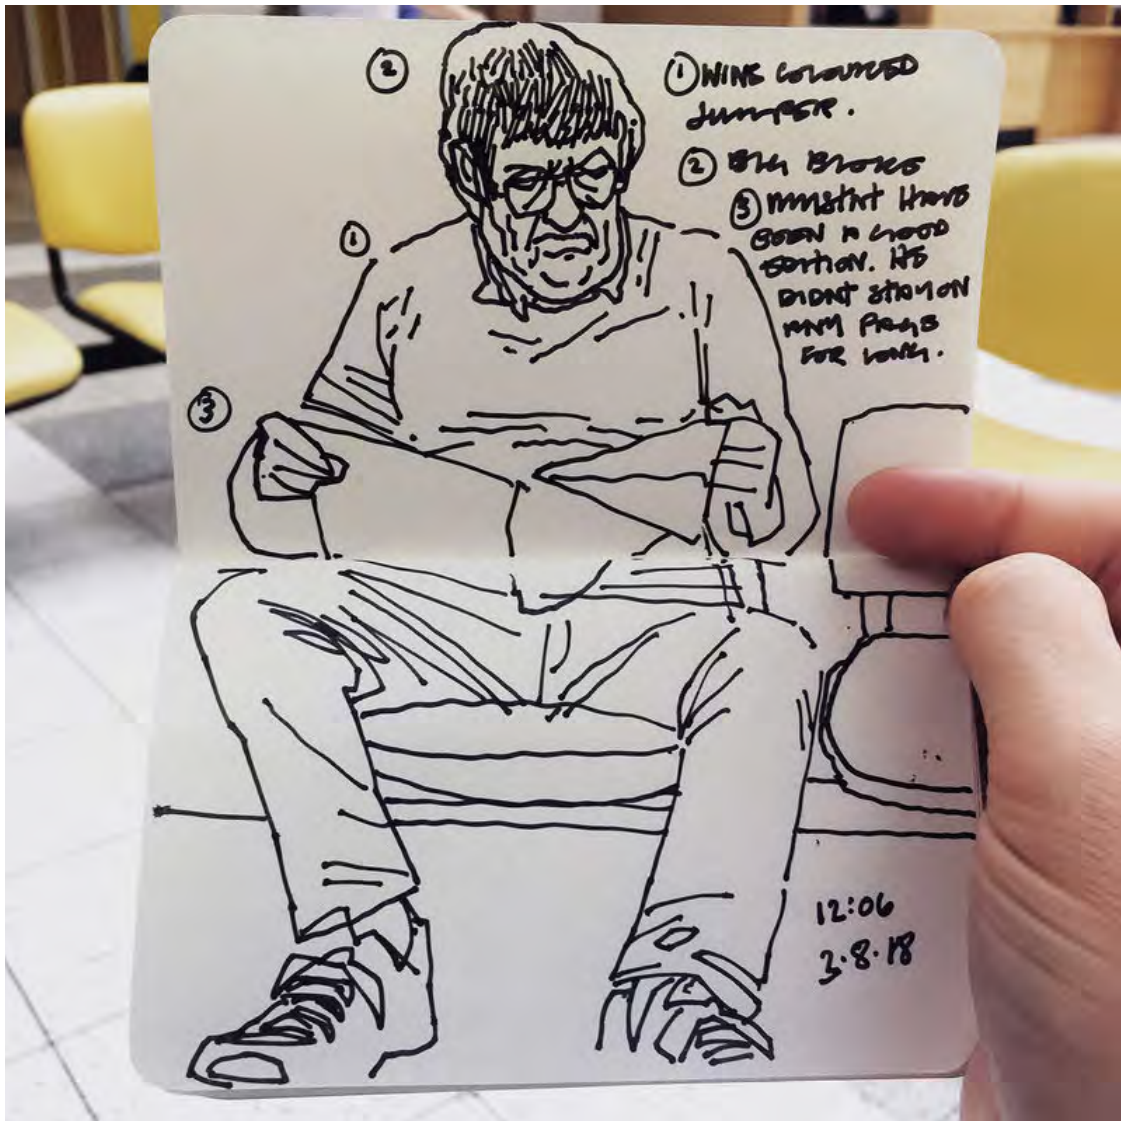 ②
① WINE COLOURED
JUMPER.
② BIG BLOKE
③ MUSTNT HAVE
BEEN A GOOD
EDITION. HE
DIDNT STAY ON
ANY PAGE
FOR LONG.
①
③
12:06
3·8·18